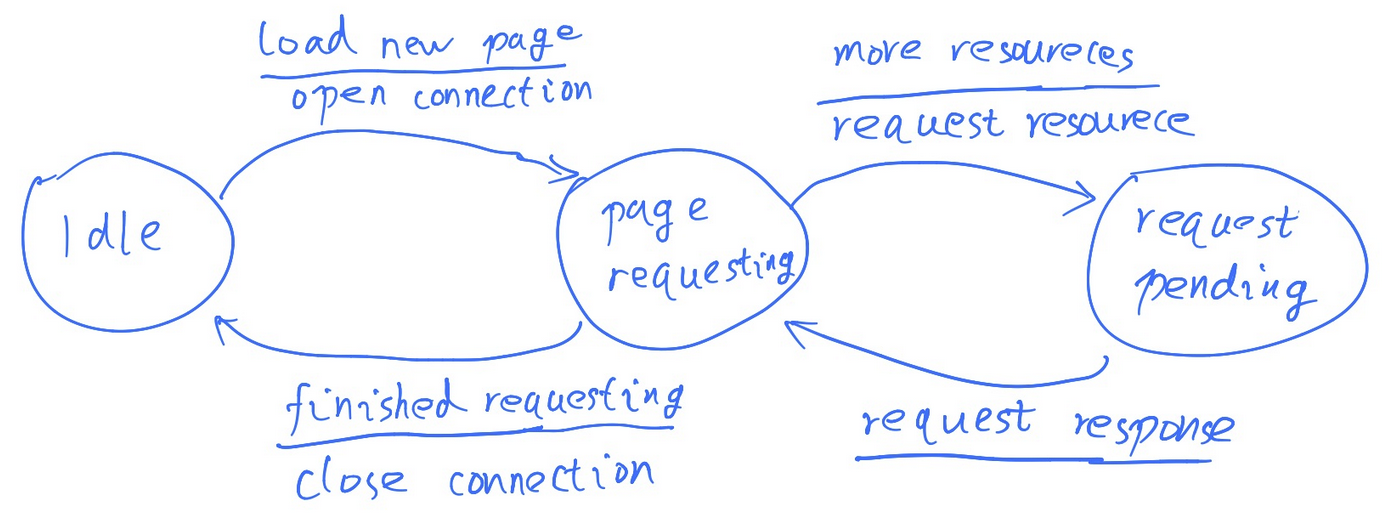 load new page
open connection
more resoureces
request resourece
Idle
page
requesting
request
pending
finished requesting
close connection
request response